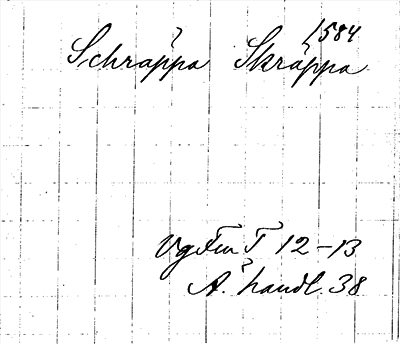 1584
Schräppa Skräppa
Vg Fm T 12-13
Ä. handl. 38